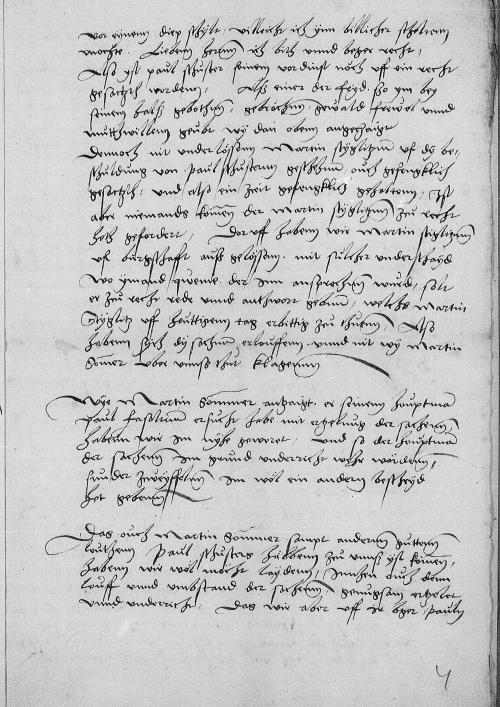 vor eynem diep schylt, villeicht ich ynn billicher scheltenn
mochte. Liebenn hernn ich bith vnnd beger recht,
Also yst paul schuster seinem vordinst noch vff ein recht
gesatzth wordenn, Alß einer der freyd. so ym bey
seinem halß gebothenn, gebrochenn, gewald frevel vnnd
mutthwillenn geubt wy dan obenn angehaigt
Dennoch nit vnderlossenn Martin styglitzenn vf dy be-
schuldung von paul schustern geschehnn, ouch gefengklich
gesatzth: vnd also ein zeit gefengklich gehaltenn, Ist
aber niemands komen der Martin styglitzenn zu recht
heth gefordert, Doruff habenn wir Martin styglitzenn
vf burgschafft auß gelossenn. mit sulcher vnderschayd
wo ymand queme der inn ansprechenn wurd, solt
er zu recht rede vnnd anthwort gebenn, welchs Martin
Styglitz vff heuttigenn tag erbettig zu thuenn, Also
habenn sych dy sachenn erlouffenn. vnnd nit wy Martin
Sommer vber vnnß thut klagenn

Wye Martin Sommer antzaigt. er seinem houptman
Paul ersucht habe mit ertzelung der sachenn,
habenn wir in nyhe geweret, vnd so der houptman
der sachenn im grund vnderricht were wordenn,
hunder zweyffelnn im wol ein andern bescheyd
het gebenn

Das ouch Martin Sommer sampt andernn guttenn
leuthenn Paul schusters halbenn zu vnnß yst komen,
habenn wir wol mocht leydenn, inhen ouch denn
louff vnnd vmbstand der sachenn, genugsam ertzelet
vnnd vnderricht, Das wir aber vff ir beger pauln
4